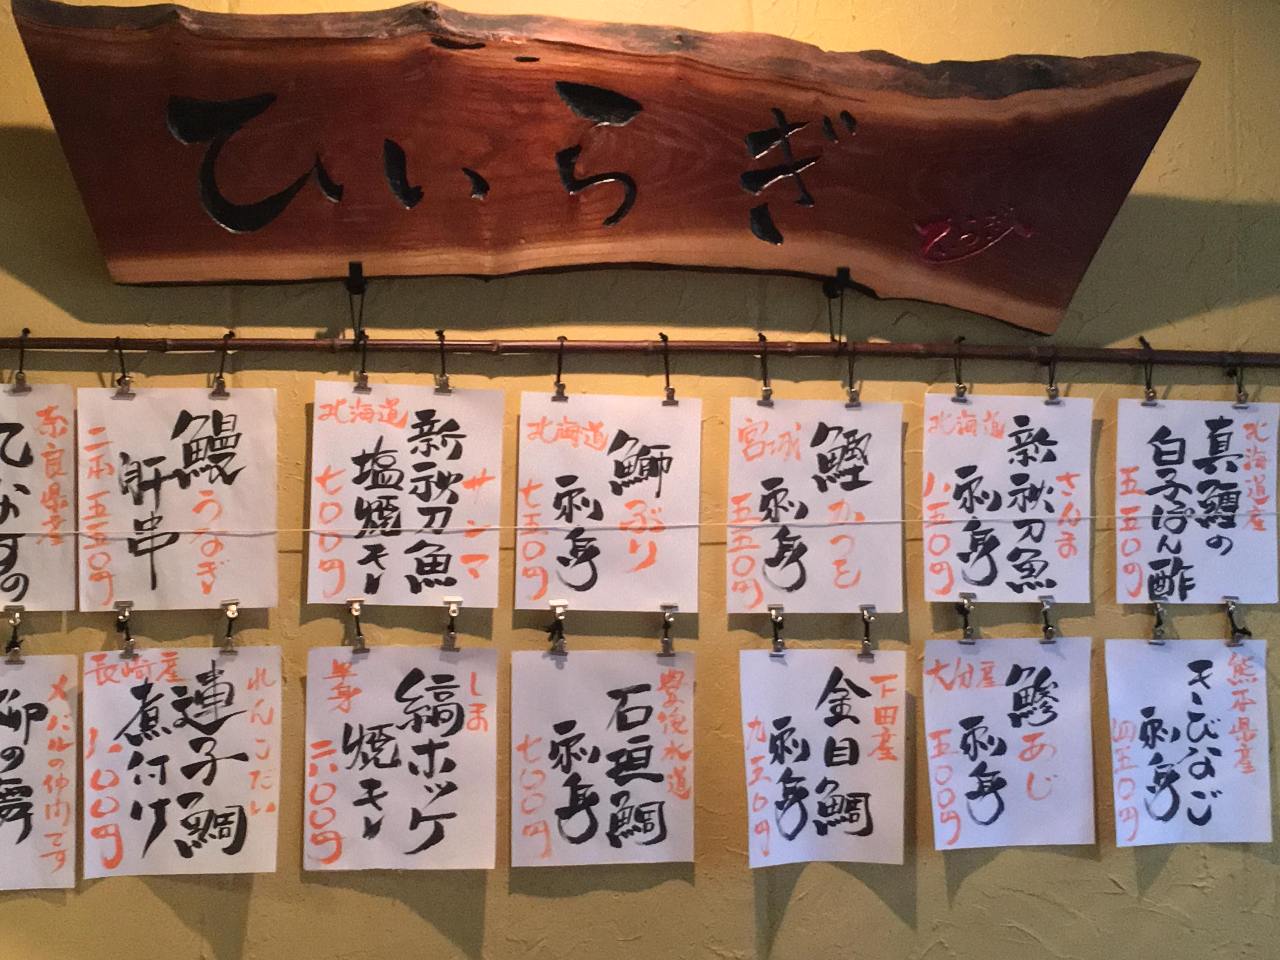 ひいらぎ
ひいらぎ
北海道産
真鱈の
白子ぽん酢
五五〇円
さんま
新秋刀魚
刺身
北海道
八五〇円
鰹
かつを
刺身
宮城
五五〇円
鰤
ぶり
刺身
北海道
七五〇円
サンマ
新秋刀魚
塩焼き
北海道
七〇〇円
鰻
うなぎ
肝串
二本 五五〇円
奈良県産
ひなすの
熊本県産
きびなご
刺身
四五〇円
鯵
あじ
刺身
大分産
五五〇円
下田産
金目鯛
刺身
九五〇円
豊後水道
石垣鯛
刺身
七〇〇円
しま
縞ホッケ
焼き
半身
六〇〇円
れんこだい
連子鯛
煮付け
長崎産
八〇〇円
メバルの仲間です
柳の舞